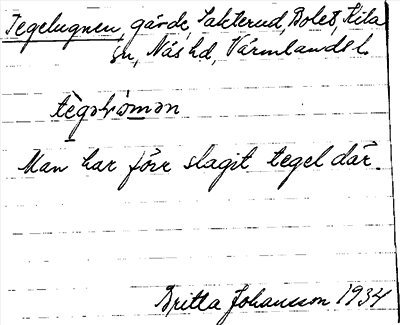 Tegelugnen, gärde, Lakterud, Bolet, Kila
sn, Näs hd, Värmlands l.
Man har förr slagit tegel där.
Britta Johansson 1934